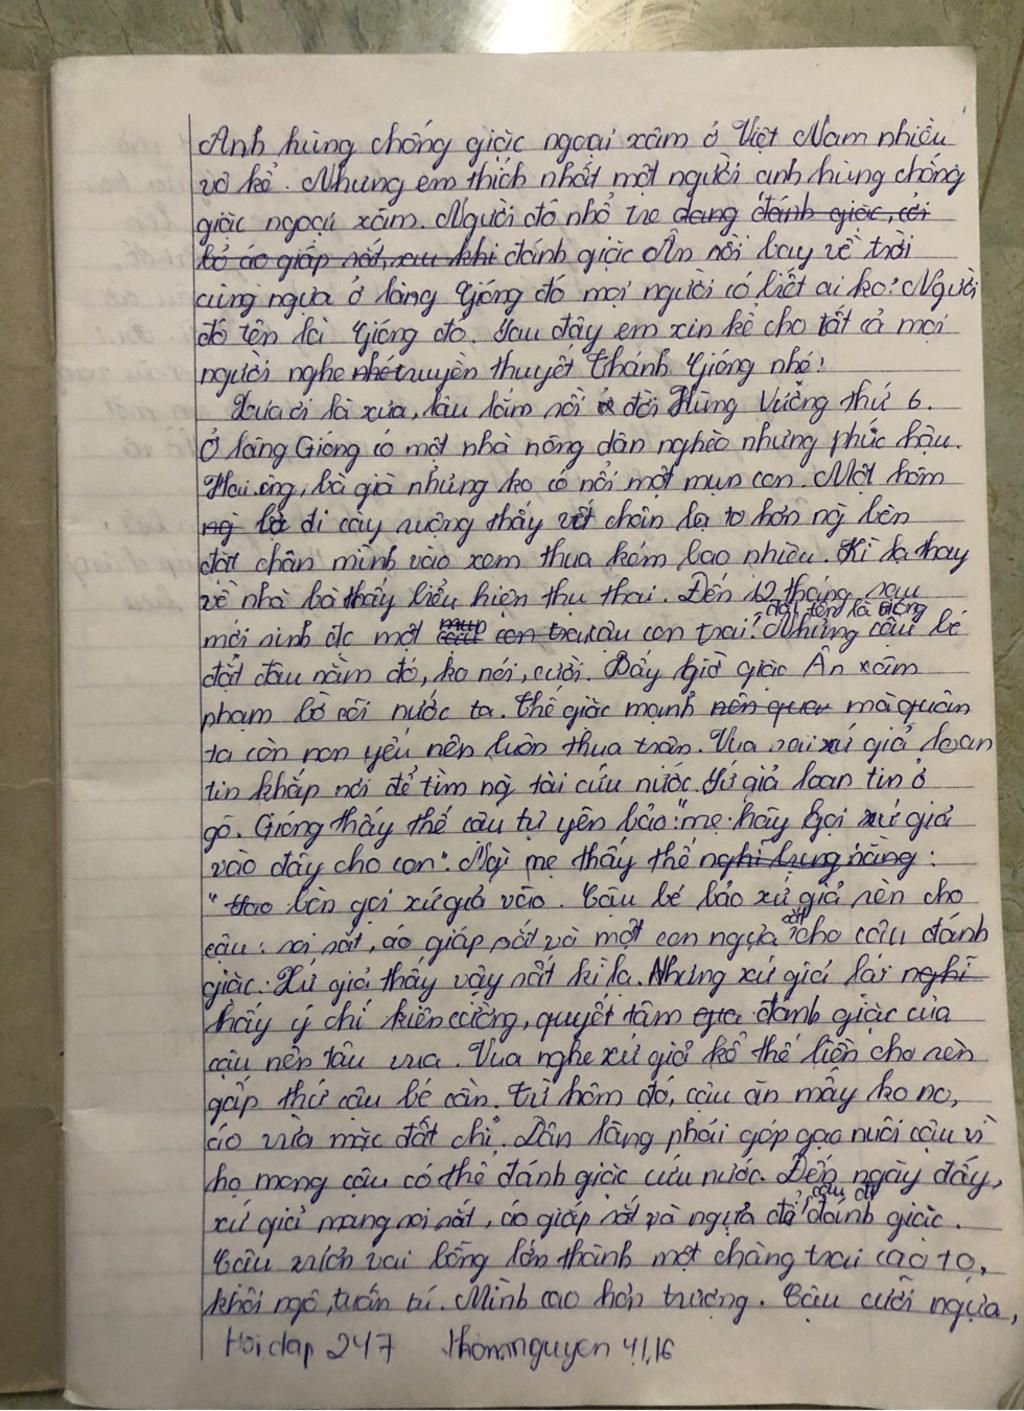 Anh hùng chống giặc ngoại xâm ở Việt Nam nhiều
vô kể. Nhưng em thích nhất một người anh hùng chống
giặc ngoại xâm. Người đó nhỏ tre đang đánh giặc, cởi
bỏ áo giáp sắt, sau khi đánh giặc Ân rồi bay về trời
cùng ngựa ở làng Gióng đó mọi người có biết ai ko? Người
đó tên là Gióng đó. Sau đây em xin kể cho tất cả mọi
người nghe nhé truyền thuyết Thánh Gióng nhé!
Xưa ơi là xưa, lâu lắm rồi ở đời Hùng Vương thứ 6.
Ở làng Gióng có một nhà nông dân nghèo nhưng phúc hậu.
Hai ông, bà già nhưng ko có nổi một mụn con. Một hôm
bà đi cày ruộng thấy vết chân lạ to hơn ng bèn
đặt chân mình vào xem thua kém bao nhiêu. Kì lạ thay
về nhà bà thấy biểu hiện thụ thai. Đến 12 tháng sau
đặt tên là Gióng
mới sinh đc một con trai cậu con trai. Nhưng cậu bé
đặt đâu nằm đó, ko nói, cười. Bấy giờ giặc Ân xâm
phạm bờ cõi nước ta. Thế giặc mạnh nên quân mà quân
ta còn non yếu nên luôn thua trận. Vua sai xứ giả loan
tin khắp nơi để tìm ng tài cứu nước. Sứ giả loan tin ở
gõ. Gióng thấy thế cậu tự yên bảo: "mẹ hãy gọi xứ giả
vào đây cho con". Ng mẹ thấy thế nghĩ bụng rằng:
" bèn gọi xứ giả vào. Cậu bé bảo xứ giả rèn cho
sắt
cậu: roi sắt, áo giáp sắt và một con ngựa cho cậu đánh
giặc. Xứ giả thấy vậy rất kì lạ. Nhưng xứ giả lại nghĩ
thấy ý chí kiên cường, quyết tâm đánh giặc của
cậu nên tâu vua. Vua nghe xứ giả kể thế liền cho rèn
gấp thứ cậu bé cần. Từ hôm đó, cậu ăn mấy ko no,
áo vừa mặc đất chỉ. Dân làng phải góp gạo nuôi cậu vì
họ mong cậu có thể đánh giặc cứu nước. Đến ngày đấy,
cậu đi
xứ giả mang roi sắt, áo giáp sắt và ngựa để đánh giặc.
Cậu vai bỗng lớn thành một chàng trai cao to,
khôi ngô, tuấn tú. Mình cao hơn trượng. Cậu cưỡi ngựa,
Hoidap 247 thomnguyen 41,16